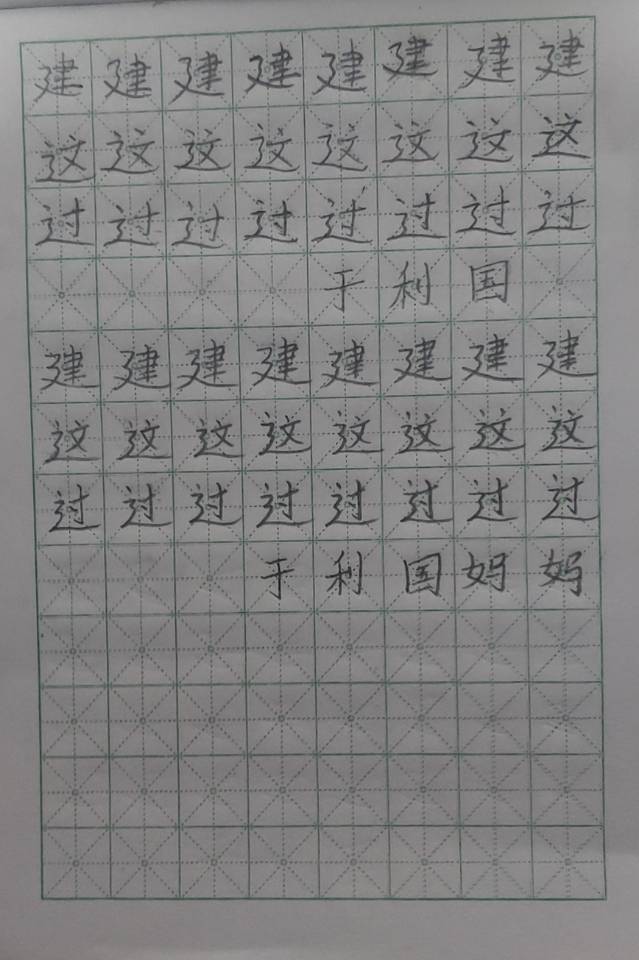 建建建建建建建建
这这这这这这这这
过过过过过过过过
于利国
建建建建建建建建
这这这这这这这这
过过过过过过过过
于利国妈妈